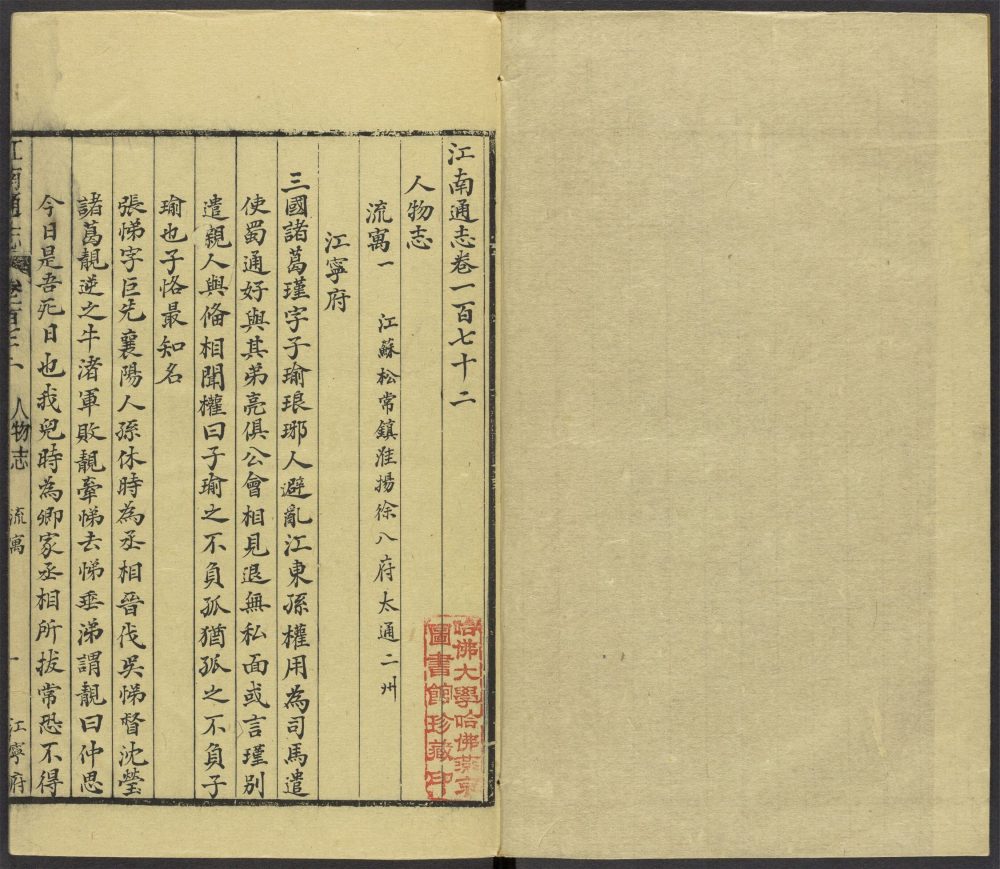 江南通志卷一百七十二
人物志
流寓一 江蘇松常鎮淮揚徐八府太通二州
江寧府
三國諸葛瑾字子瑜琅琊人避亂江東孫權用為司馬遣
使蜀通好與其弟亮俱公會相見退無私面或言瑾別
遣親人與備相聞權曰子瑜之不負孤猶孤之不負子
瑜也子恪最知名
張悌字巨先襄陽人孫休時為丞相晉伐吳悌督沈瑩
諸葛靚逆之牛渚軍敗靚牽悌去悌垂涕謂靚曰仲思
今日是吾死日也我兒時為卿家丞相所拔常恐不得
江南通志 卷之百七十二 人物志 流寓 一 江寧府
哈佛大學哈佛燕京
圖書館珍藏印